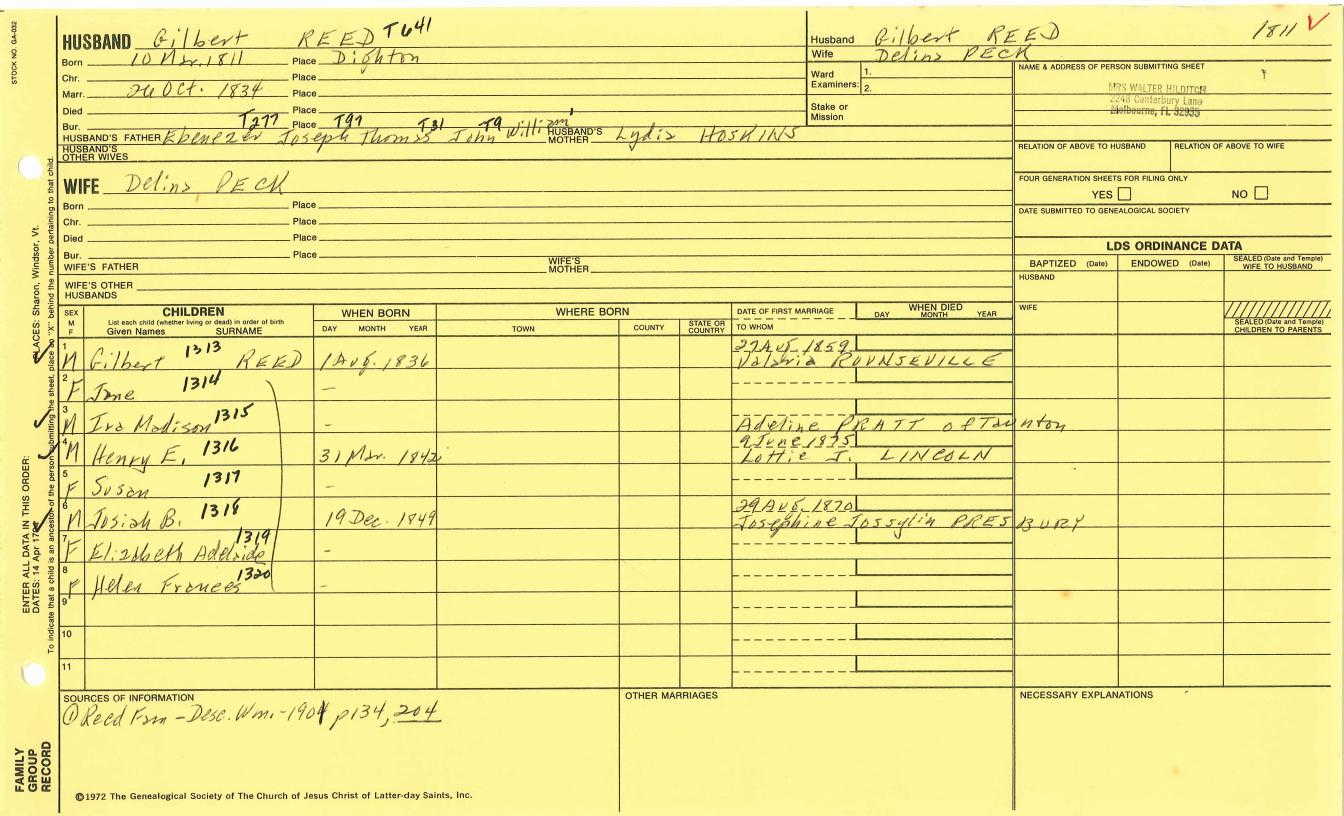 STOCK NO. GA-032
HUSBAND Gilbert REED T641
Born 10 Mar. 1811 Place Dighton
Chr. Place
Marr. 20 Oct. 1834 Place
Died Place
Bur. Place
T277 T97 T31 T9
HUSBAND'S FATHER Ebenezer Joseph Thomas John William HUSBAND'S MOTHER Lydia HOSKINS
HUSBAND'S OTHER WIVES
Husband Gilbert REED 1811
Wife Delina PECK
Ward Examiners: 1.
2.
Stake or Mission
NAME & ADDRESS OF PERSON SUBMITTING SHEET
MRS WALTER HILDITCH
2248 Canterbury Lane
Melbourne, FL 32935
RELATION OF ABOVE TO HUSBAND RELATION OF ABOVE TO WIFE
FOUR GENERATION SHEETS FOR FILING ONLY
YES NO
DATE SUBMITTED TO GENEALOGICAL SOCIETY
WIFE Delina PECK
Born Place
Chr. Place
Died Place
Bur. Place
WIFE'S FATHER WIFE'S MOTHER
WIFE'S OTHER HUSBANDS
LDS ORDINANCE DATA
BAPTIZED (Date) ENDOWED (Date) SEALED (Date and Temple) WIFE TO HUSBAND
HUSBAND
WIFE
SEALED (Date and Temple) CHILDREN TO PARENTS
SEX M F CHILDREN List each child (whether living or dead) in order of birth Given Names SURNAME
WHEN BORN DAY MONTH YEAR
WHERE BORN TOWN COUNTY STATE OR COUNTRY
DATE OF FIRST MARRIAGE TO WHOM
WHEN DIED DAY MONTH YEAR
1 M Gilbert 1313 REED 1 Aug. 1836 27 Aug. 1859 Valaria ROUNSEVILLE
2 F Jane 1314 –
3 M Ira Madison 1315 – Adeline PRATT of Taunton
4 M Henry E. 1316 31 Mar. 1842 9 June 1875 Lottie J. LINCOLN
5 F Susan 1317 –
6 M Josiah B. 1318 19 Dec. 1849 29 Aug. 1870 Josephine Jossylin PRESBURY
7 F Elizabeth Adelaide 1319 –
8 F Helen Frances 1320 –
9
10
11
SOURCES OF INFORMATION
① Reed Fam - Desc. Wm. - 1901 p134, 204
OTHER MARRIAGES
NECESSARY EXPLANATIONS
©1972 The Genealogical Society of The Church of Jesus Christ of Latter-day Saints, Inc.
FAMILY GROUP RECORD
ENTER ALL DATA IN THIS ORDER:
DATES: 14 Apr PLACES: Sharon, Windsor, Vt.
To indicate that a child is an ancestor of the person submitting the sheet, place an "X" behind the number pertaining to that child.